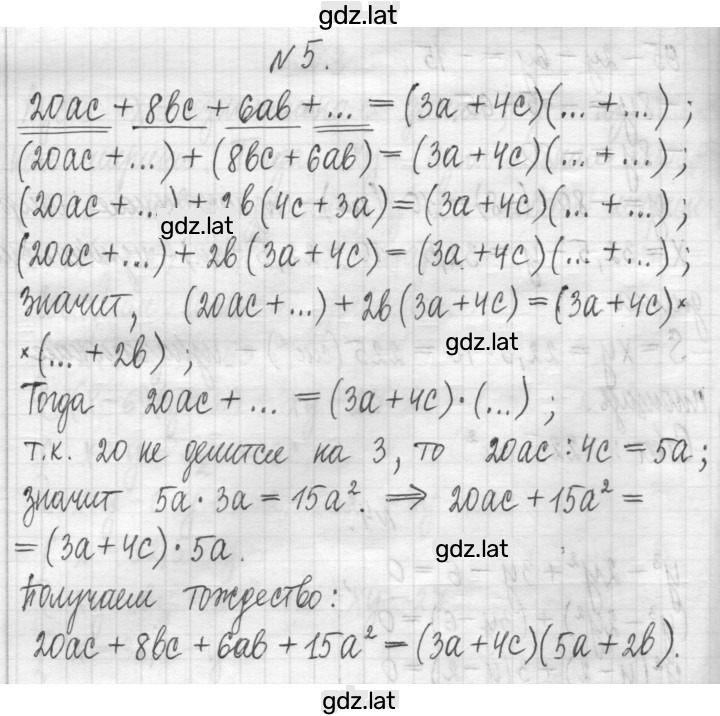 gdz.lat
N 5.
20ac + 8bc + 6ab + ... = (3a + 4c)(... + ...) ;
(20ac + ...) + (8bc + 6ab) = (3a + 4c)(... + ...) ;
(20ac + ...) + 2b(4c + 3a) = (3a + 4c)(... + ...) ;
gdz.lat
(20ac + ...) + 2b(3a + 4c) = (3a + 4c)(... + ...) ;
значит, (20ac + ...) + 2b(3a + 4c) = (3a + 4c) ×
gdz.lat
× (... + 2b) ;
Тогда 20ac + ... = (3a + 4c) · (...) ;
т.к. 20 не делится на 3, то 20ac : 4c = 5a ;
значит 5a · 3a = 15a². ⇒ 20ac + 15a² =
= (3a + 4c) · 5a.
gdz.lat
Получаем тождество:
20ac + 8bc + 6ab + 15a² = (3a + 4c)(5a + 2b).
gdz.lat